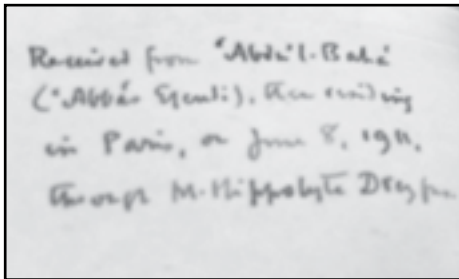 Received from ʻAbdu'l-Bahá
(ʻAbbás Efendi), then residing
in Paris, on June 8, 1911,
through M. Hippolyte Dreyfus